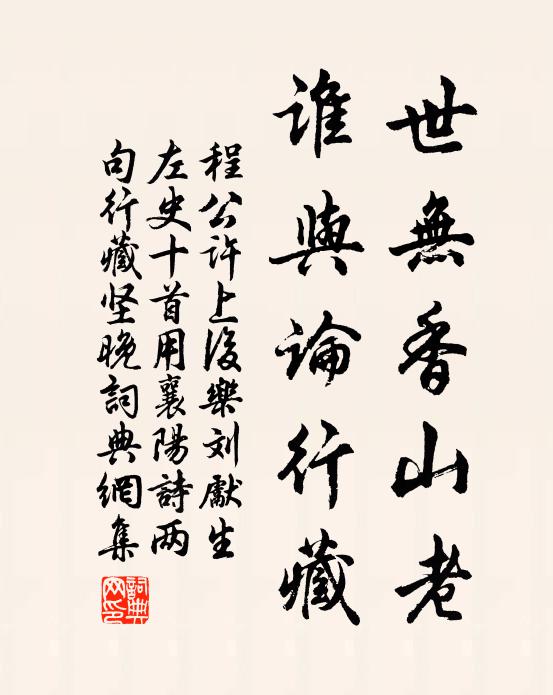 世無香山老
誰與論行藏
程公許上後樂刘獻生
左史十首用襄陽詩两
句行藏坚晚詞典網集
詞典
网印